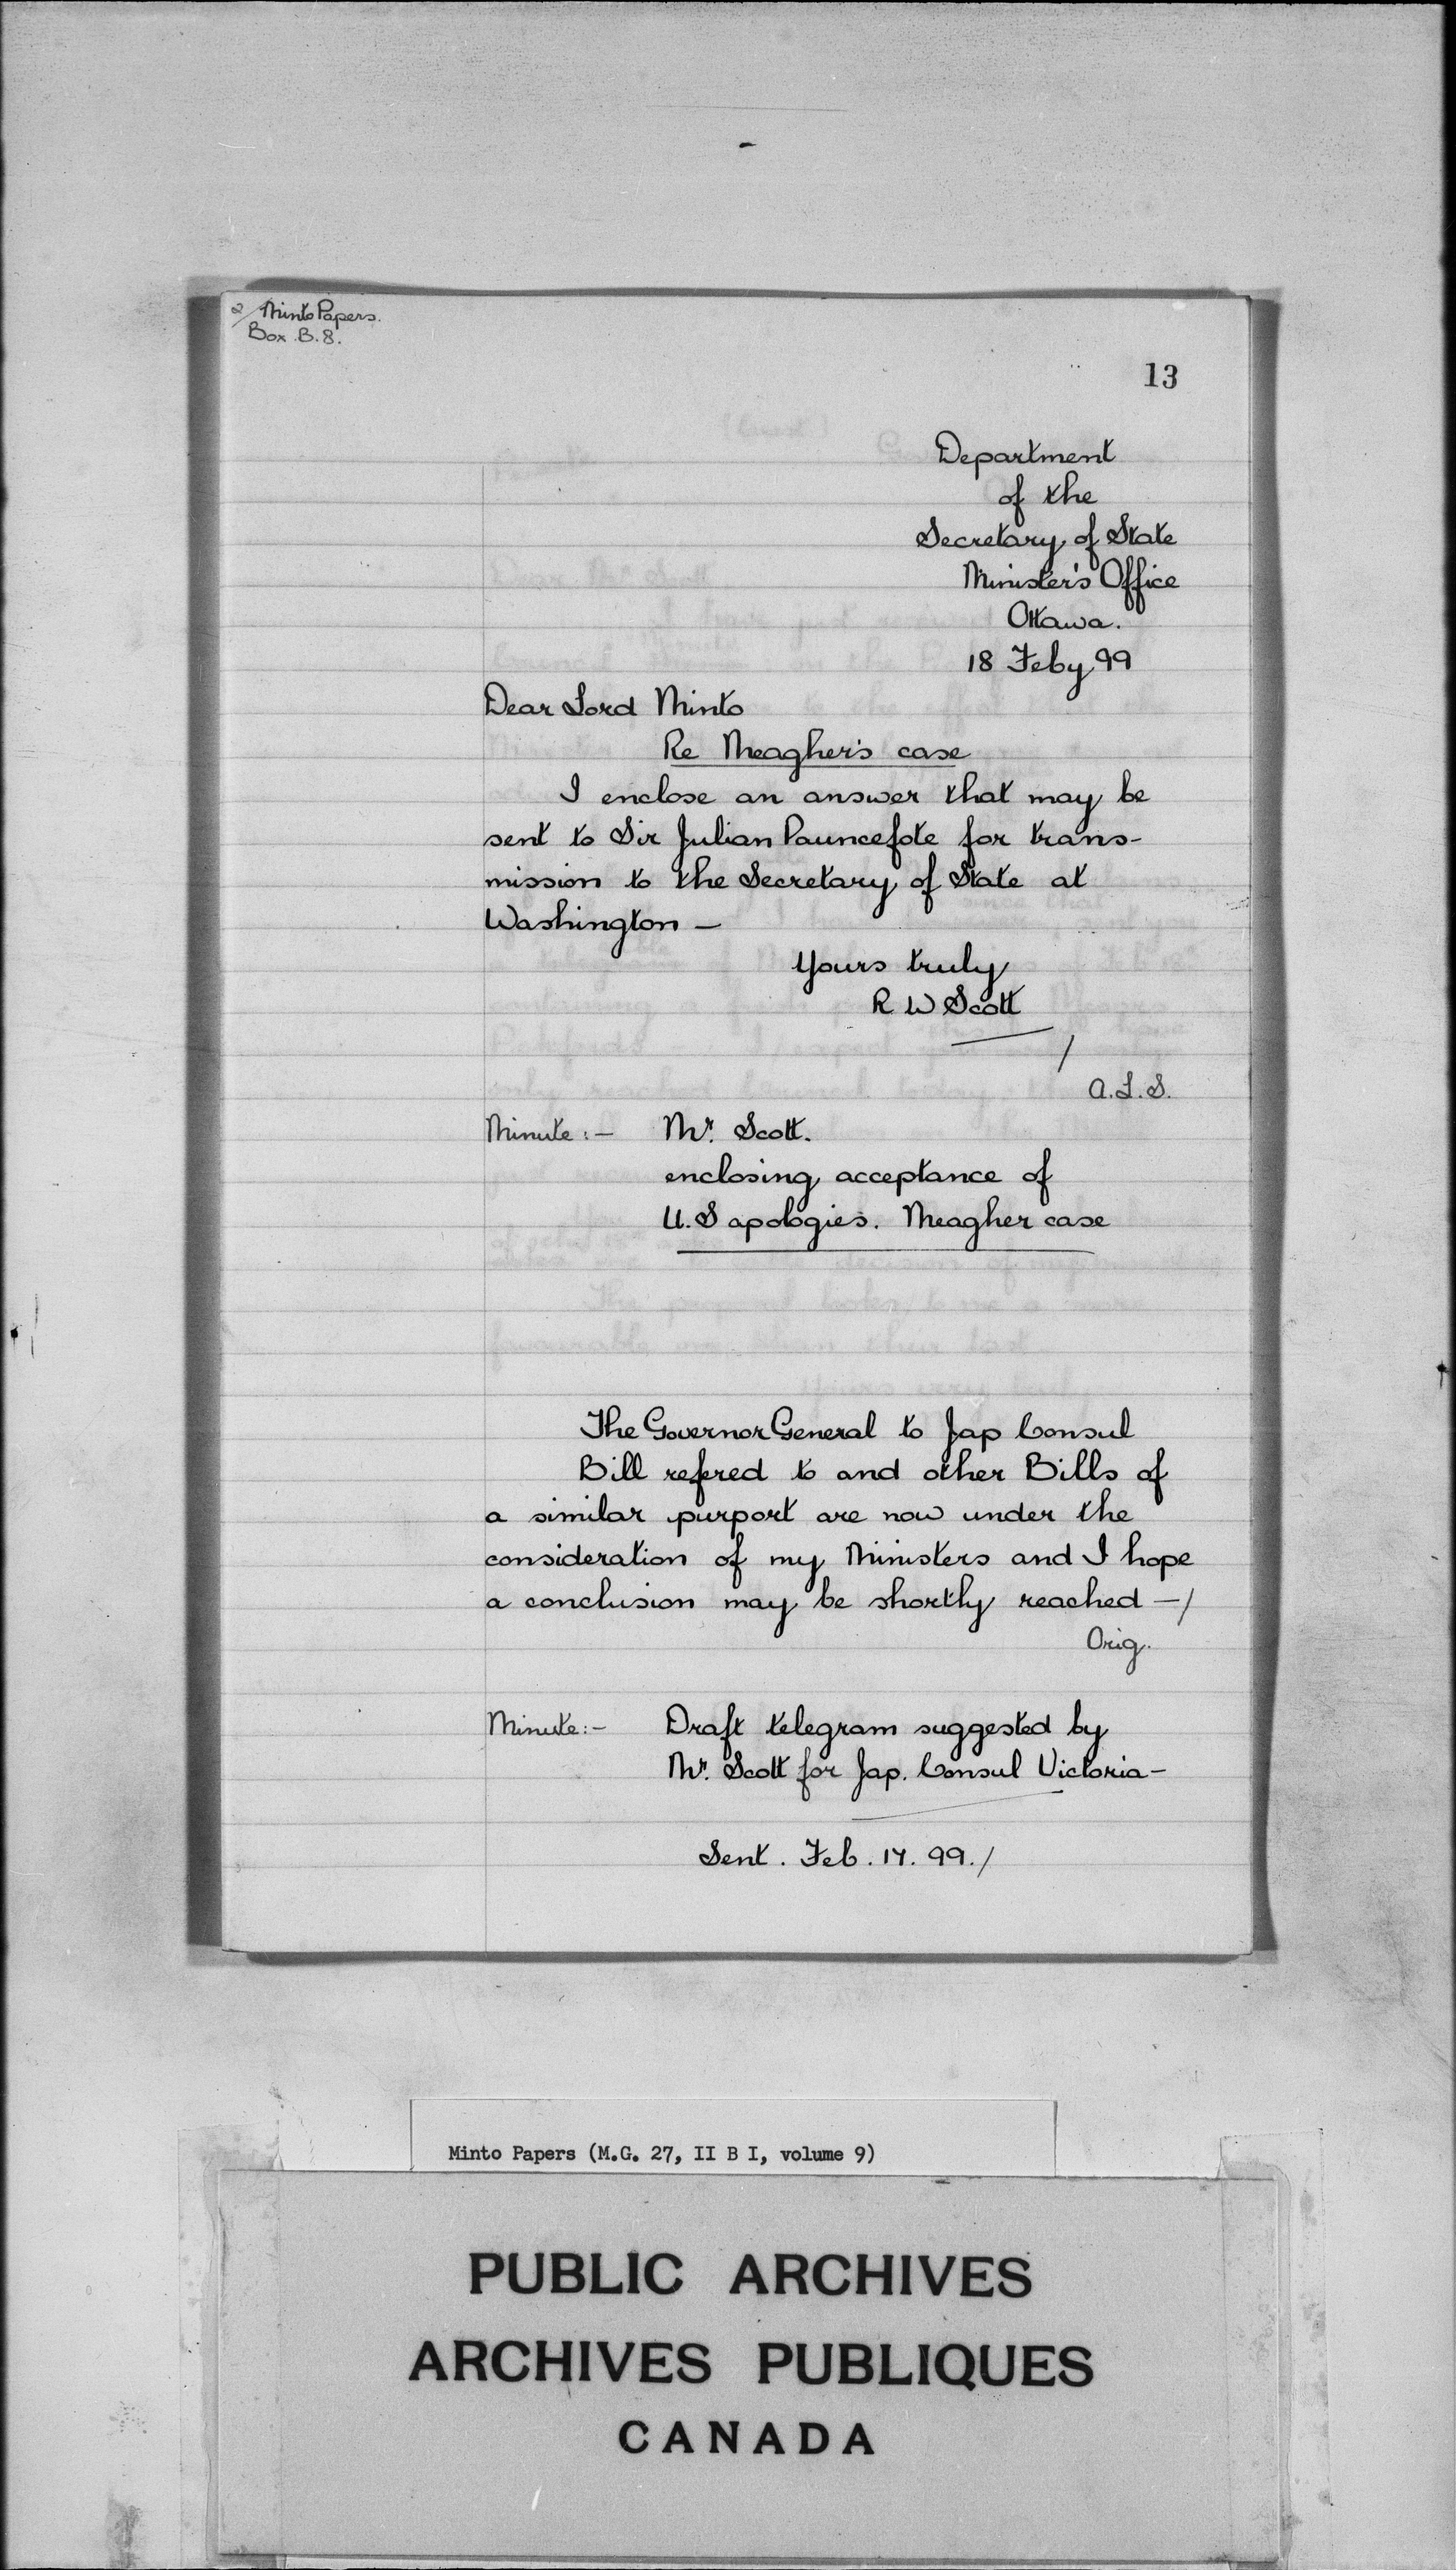 2/ Minto Papers.
Box. B. 8.
13
Department
of the
Secretary of State
Minister's Office
Ottawa.
18 Feby 99
Dear Lord Minto
Re Meagher's case
I enclose an answer that may be
sent to Sir Julian Pauncefote for trans-
mission to the Secretary of State at
Washington —
Yours truly
R W Scott
/
A.L.S.
Minute:— Mr. Scott.
enclosing acceptance of
U.S apologies. Meagher case
The Governor General to Jap Consul
Bill refered to and other Bills of
a similar purport are now under the
consideration of my Ministers and I hope
a conclusion may be shortly reached —/
Orig.
Minute:— Draft telegram suggested by
Mr. Scott for Jap. Consul Victoria—
Sent. Feb. 17. 99./
Minto Papers (M.G. 27, II B I, volume 9)
PUBLIC ARCHIVES
ARCHIVES PUBLIQUES
CANADA